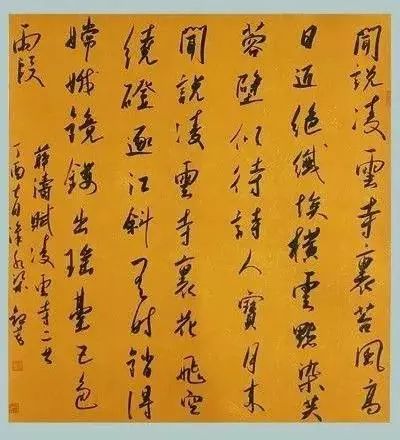 聞說凌雲寺裏苔風高
日近絕纖埃橫雲點染芙
蓉壁似待詩人寶月來
聞說凌雲寺裏花飛空
繞磴逐江斜有時鎖得
嫦娥鏡鏤出瑤臺五色
霞
薛濤賦凌雲寺二首
丁酉七月